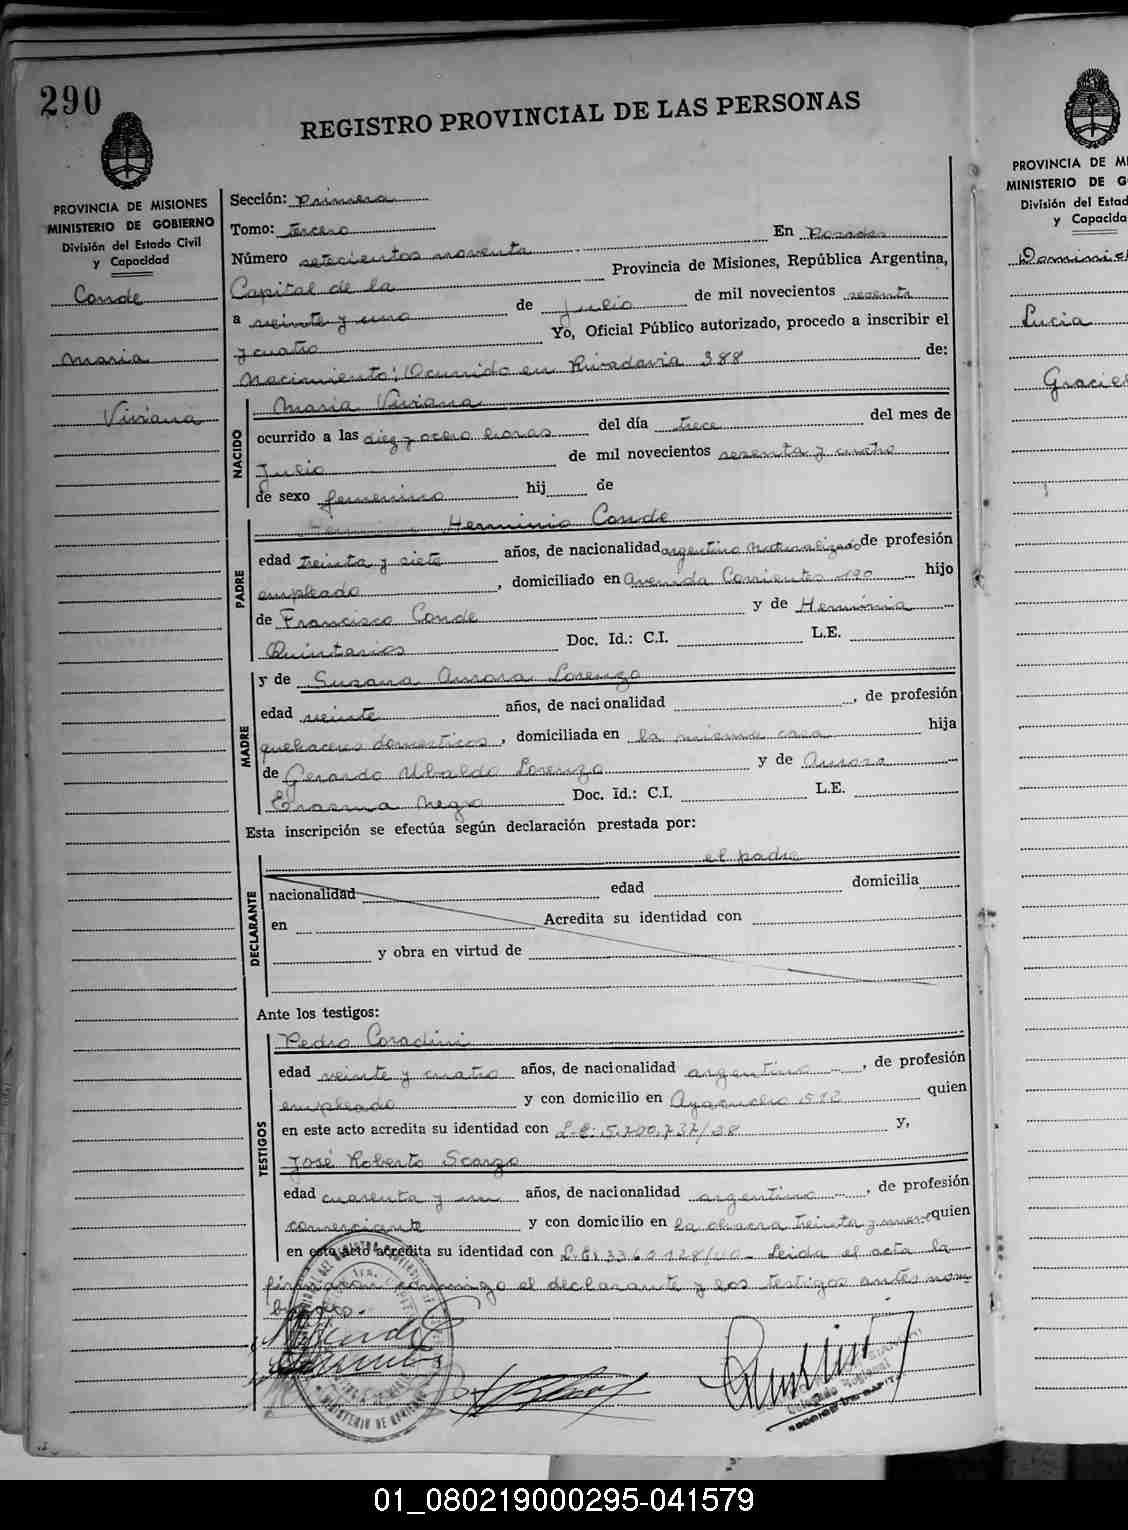 290
REGISTRO PROVINCIAL DE LAS PERSONAS
PROVINCIA DE MISIONES
MINISTERIO DE GOBIERNO
División del Estado Civil
y Capacidad
Conde
Maria
Viviana
Sección: Primera
Tomo: tercero
Número setecientos noventa En Posadas
Capital de la Provincia de Misiones, República Argentina,
a veinte y uno de Julio de mil novecientos sesenta
y cuatro Yo, Oficial Público autorizado, procedo a inscribir el
Nacimiento; Ocurrido en Rivadavia 388 de:
NACIDO
Maria Viviana
ocurrido a las diez y ocho horas del día trece del mes de
Julio de mil novecientos sesenta y cuatro
de sexo femenino hij de
PADRE
Herminio Conde
edad treinta y siete años, de nacionalidad argentino naturalizado de profesión
empleado, domiciliado en Avenida Corrientes 190 hijo
de Francisco Conde y de Herminia
Quintanos Doc. Id.: C.I. L.E.
MADRE
y de Susana Aurora Lorenzo
edad veinte años, de nacionalidad , de profesión
quehaceres domesticos, domiciliada en la misma casa hija
de Gerardo Ubaldo Lorenzo y de Aurora
Erasma Negro Doc. Id.: C.I. L.E.
Esta inscripción se efectúa según declaración prestada por:
el padre
DECLARANTE
nacionalidad edad domicilia
en Acredita su identidad con
y obra en virtud de
Ante los testigos:
TESTIGOS
Pedro Coradini
edad veinte y cuatro años, de nacionalidad argentino, de profesión
empleado y con domicilio en Ayacucho 512 quien
en este acto acredita su identidad con L.E: 5.700.737/38 y,
José Roberto Scarzo
edad cuarenta y un años, de nacionalidad argentino, de profesión
comerciante y con domicilio en la chacra treinta y nueve quien
en este acto acredita su identidad con L.E. Leida el acta la
firmaron conmigo el declarante y los testigos antes nom
brados.
PROVINCIA DE MI
MINISTERIO DE G
División del Estad
y Capacida
Lucia
Graciel
01_080219000295-041579